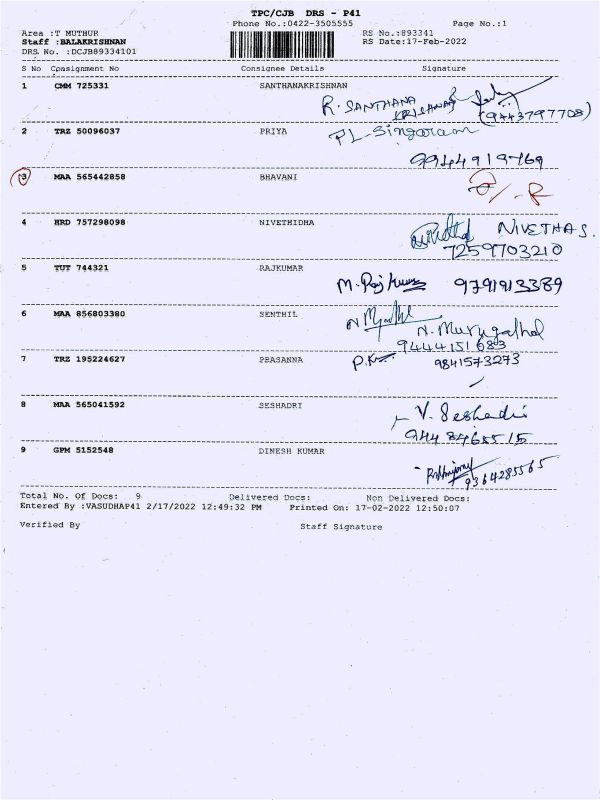 TPC/CJB DRS - P41
Phone No.:0422-3505555 Page No.:1
Area :T MUTHUR RS No.:893341
Staff :BALAKRISHNAN RS Date:17-Feb-2022
DRS No. :DCJB89334101
S No Consignment No Consignee Details Signature
1 CMM 725331 SANTHANAKRISHNAN
R. SANTHANA
KRISHNAN (9443797708)
2 TRZ 50096037 PRIYA PL-Singaram
9944919769
3 MAA 565442858 BHAVANI
4 HRD 757298098 NIVETHIDHA NIVETHA S.
7259703210
5 TUT 744321 RAJKUMAR
M. Rajkumar 9791913389
6 MAA 856803380 SENTHIL
N. Murugathal
9444151683
7 TRZ 195224627 PRASANNA P.K 9841573273
8 MAA 565041592 SESHADRI V. Seshadri
9448465515
9 GPM 5152548 DINESH KUMAR
9364285565
Total No. Of Docs: 9 Delivered Docs: Non Delivered Docs:
Entered By :VASUDHAP41 2/17/2022 12:49:32 PM Printed On: 17-02-2022 12:50:07
Verified By Staff Signature